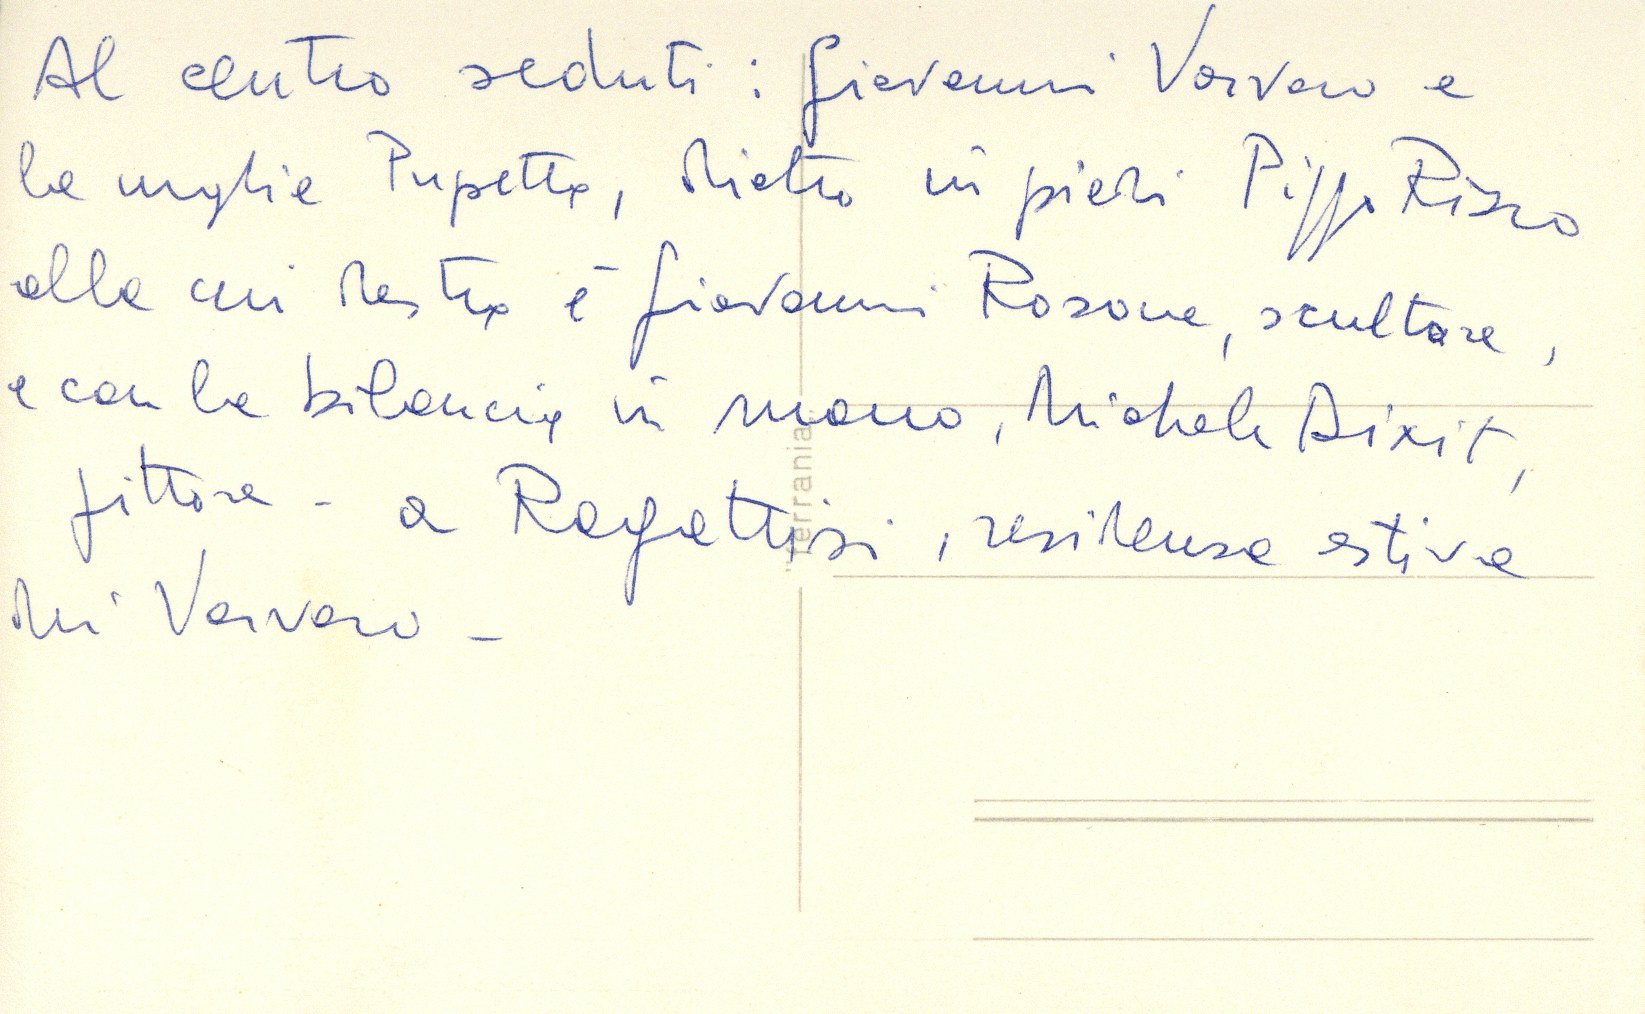 Al centro seduti: Giovanni Varvaro e
la moglie Pupetta, dietro in piedi Pippo Rizzo
alla cui destra è Giovanni Rosone, scultore,
e con la bilancia in mano, Michele Dixit,
pittore - a Ragattisi, residenza estiva
dei Varvaro -
"Ferrania"